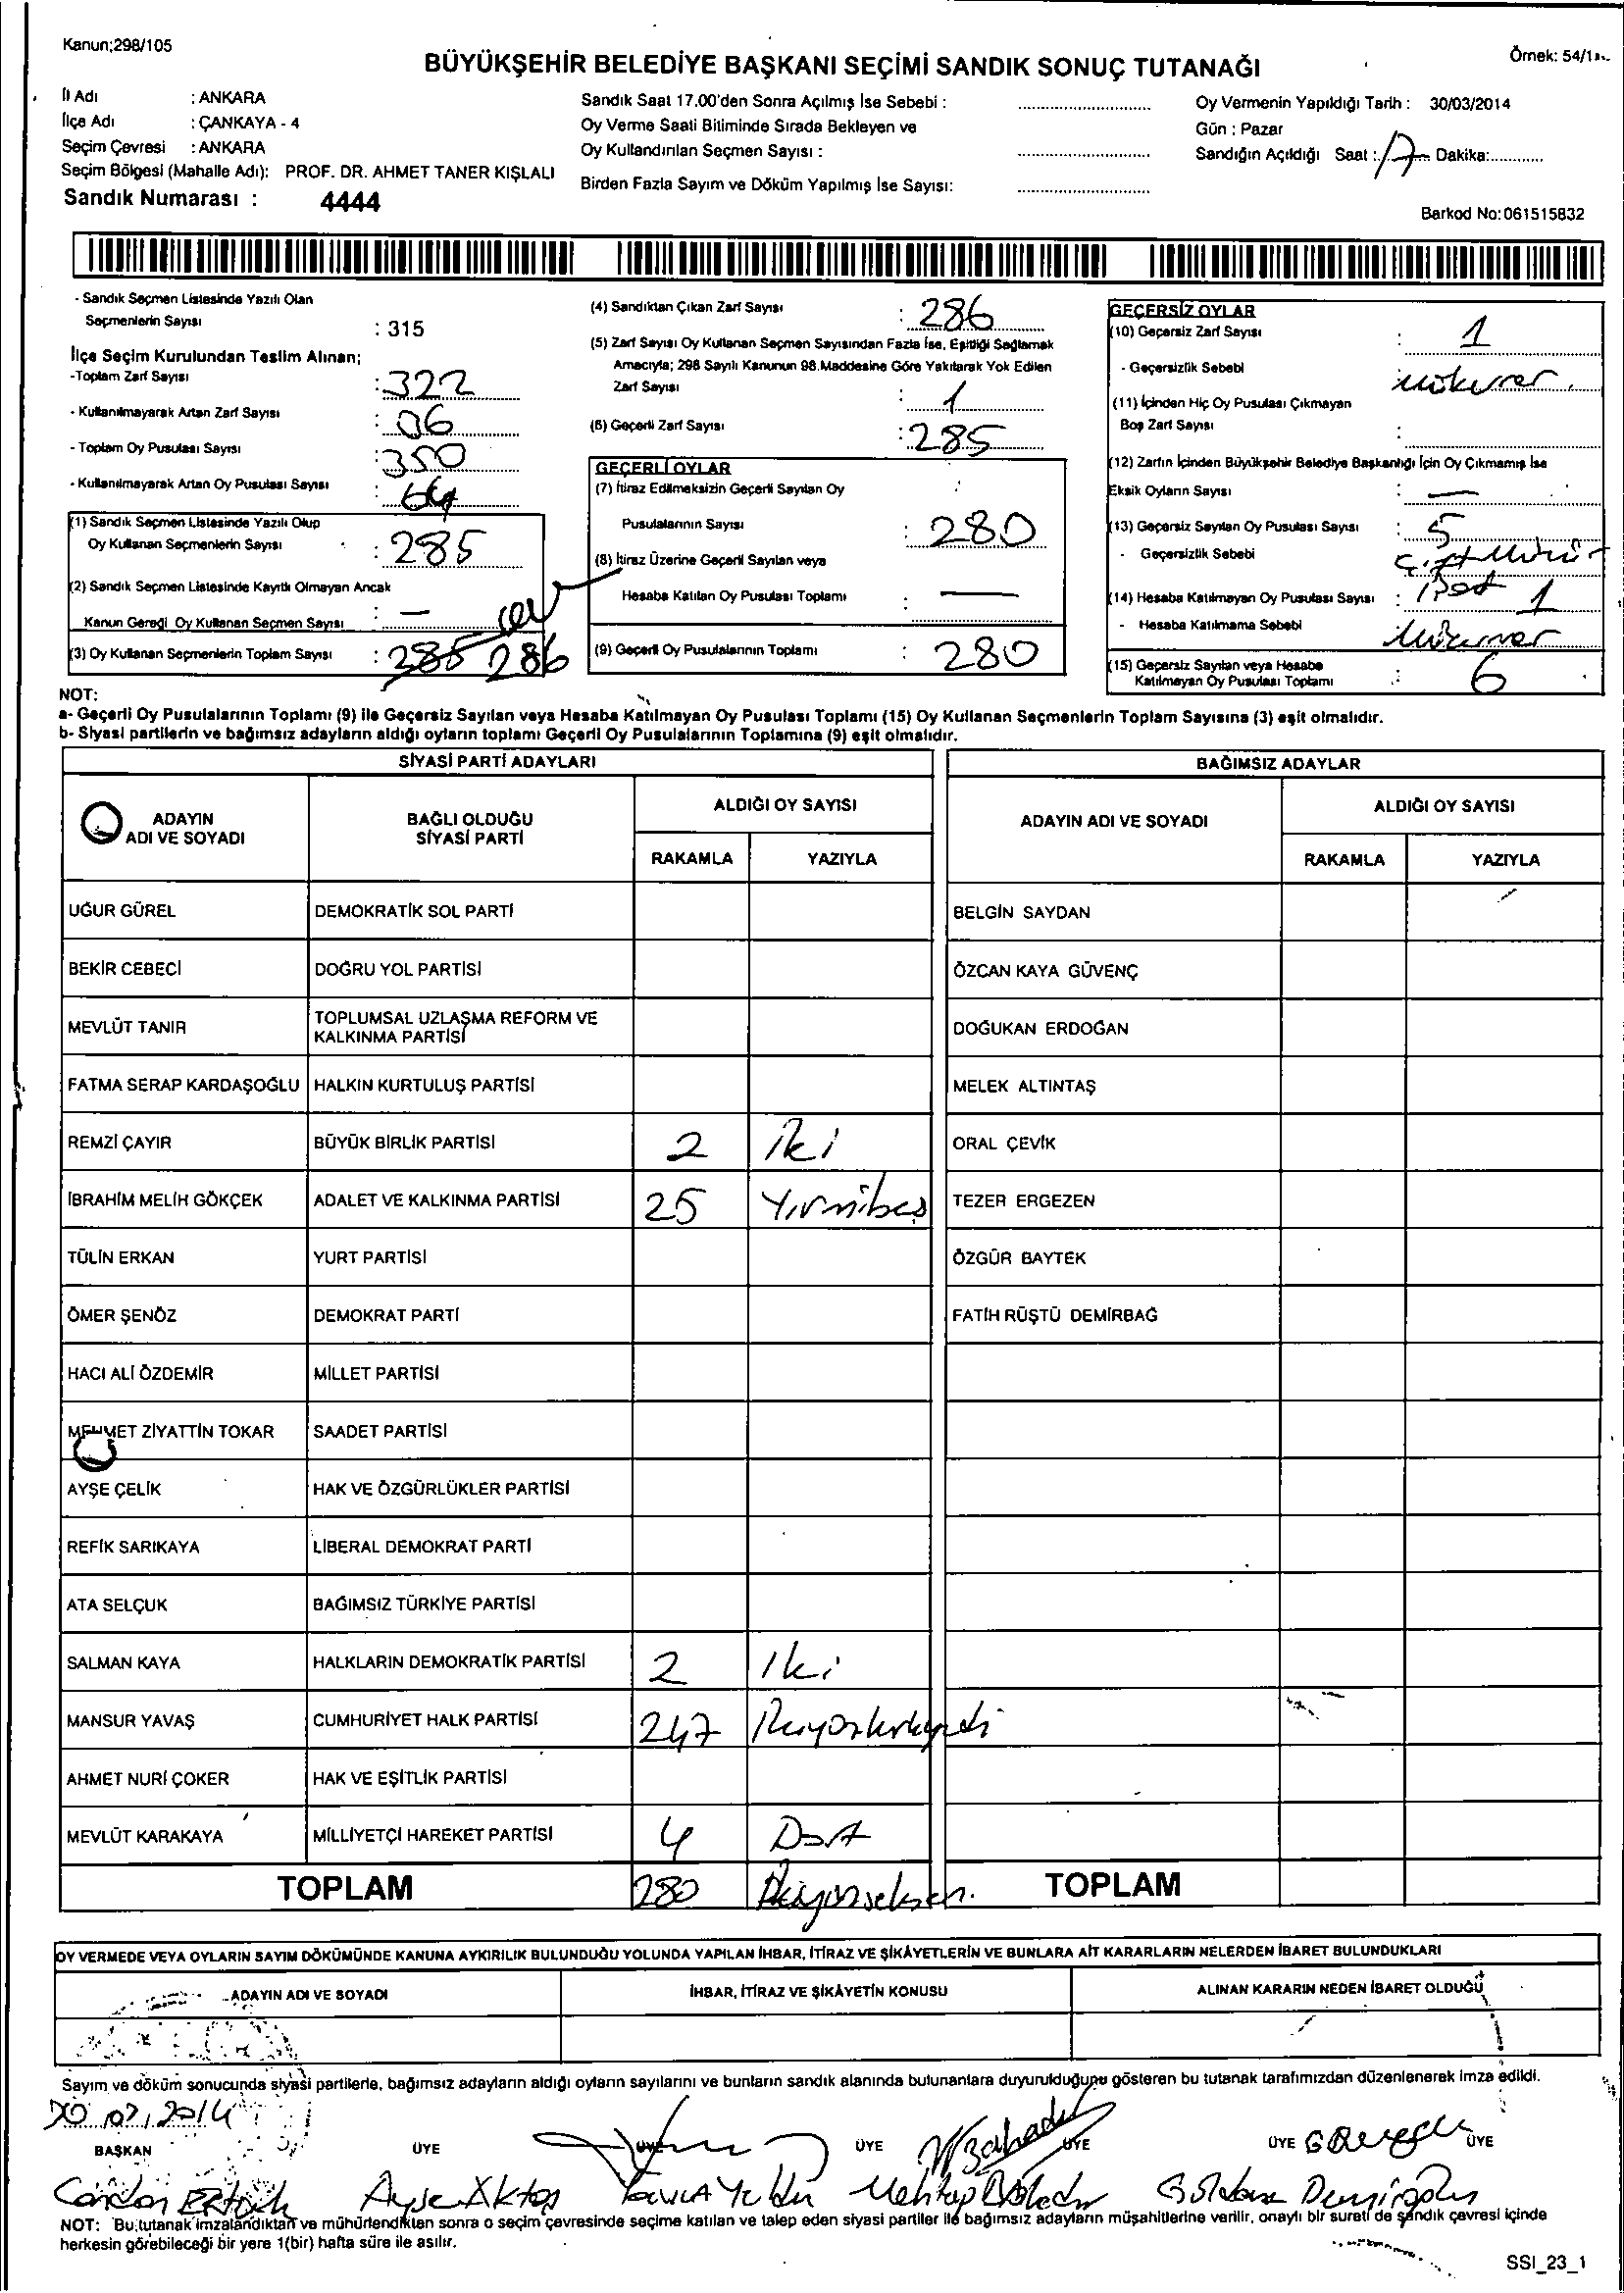 Kanun;298/105
Örnek: 54/1
BÜYÜKŞEHİR BELEDİYE BAŞKANI SEÇİMİ SANDIK SONUÇ TUTANAĞI
İl Adı : ANKARA
İlçe Adı : ÇANKAYA - 4
Seçim Çevresi : ANKARA
Seçim Bölgesi (Mahalle Adı): PROF. DR. AHMET TANER KIŞLALI
Sandık Numarası : 4444
Sandık Saat 17.00'den Sonra Açılmış İse Sebebi :
Oy Verme Saati Bitiminde Sırada Bekleyen ve
Oy Kullandırılan Seçmen Sayısı :
Birden Fazla Sayım ve Döküm Yapılmış İse Sayısı:
Oy Vermenin Yapıldığı Tarih : 30/03/2014
Gün : Pazar
Sandığın Açıldığı Saat : 17 Dakika:
Barkod No:061515832
- Sandık Seçmen Listesinde Yazılı Olan
Seçmenlerin Sayısı : 315
İlçe Seçim Kurulundan Teslim Alınan;
-Toplam Zarf Sayısı : 322
- Kullanılmayarak Artan Zarf Sayısı : 06
- Toplam Oy Pusulası Sayısı : 350
- Kullanılmayarak Artan Oy Pusulası Sayısı : 64
(1) Sandık Seçmen Listesinde Yazılı Olup
Oy Kullanan Seçmenlerin Sayısı : 285
(2) Sandık Seçmen Listesinde Kayıtlı Olmayan Ancak
Kanun Gereği Oy Kullanan Seçmen Sayısı : —
(3) Oy Kullanan Seçmenlerin Toplam Sayısı : 285 286
(4) Sandıktan Çıkan Zarf Sayısı : 286
(5) Zarf Sayısı Oy Kullanan Seçmen Sayısından Fazla İse, Eşitliği Sağlamak
Amacıyla; 298 Sayılı Kanunun 98.Maddesine Göre Yakılarak Yok Edilen
Zarf Sayısı : 1
(6) Geçerli Zarf Sayısı : 285
GEÇERLİ OYLAR
(7) İtiraz Edilmeksizin Geçerli Sayılan Oy
Pusulalarının Sayısı : 280
(8) İtiraz Üzerine Geçerli Sayılan veya
Hesaba Katılan Oy Pusulası Toplamı : —
(9) Geçerli Oy Pusulalarının Toplamı : 280
GEÇERSİZ OYLAR
(10) Geçersiz Zarf Sayısı : 1
- Geçersizlik Sebebi
(11) İçinden Hiç Oy Pusulası Çıkmayan
Boş Zarf Sayısı :
(12) Zarfın İçinden Büyükşehir Belediye Başkanlığı İçin Oy Çıkmamış İse
Eksik Oyların Sayısı : —
(13) Geçersiz Sayılan Oy Pusulası Sayısı : 5
- Geçersizlik Sebebi
(14) Hesaba Katılmayan Oy Pusulası Sayısı : 1
- Hesaba Katılmama Sebebi
(15) Geçersiz Sayılan veya Hesaba
Katılmayan Oy Pusulası Toplamı : 6
NOT:
a- Geçerli Oy Pusulalarının Toplamı (9) ile Geçersiz Sayılan veya Hesaba Katılmayan Oy Pusulası Toplamı (15) Oy Kullanan Seçmenlerin Toplam Sayısına (3) eşit olmalıdır.
b- Siyasi partilerin ve bağımsız adayların aldığı oyların toplamı Geçerli Oy Pusulalarının Toplamına (9) eşit olmalıdır.
SİYASİ PARTİ ADAYLARI
ADAYIN ADI VE SOYADI
BAĞLI OLDUĞU SİYASİ PARTİ
ALDIĞI OY SAYISI
RAKAMLA YAZIYLA
UĞUR GÜREL DEMOKRATİK SOL PARTİ
BEKİR CEBECİ DOĞRU YOL PARTİSİ
MEVLÜT TANIR TOPLUMSAL UZLAŞMA REFORM VE
KALKINMA PARTİSİ
FATMA SERAP KARDAŞOĞLU HALKIN KURTULUŞ PARTİSİ
REMZİ ÇAYIR BÜYÜK BİRLİK PARTİSİ 2 iki
İBRAHİM MELİH GÖKÇEK ADALET VE KALKINMA PARTİSİ 25 Yirmibeş
TÜLİN ERKAN YURT PARTİSİ
ÖMER ŞENÖZ DEMOKRAT PARTİ
HACI ALİ ÖZDEMİR MİLLET PARTİSİ
MEHMET ZİYATTİN TOKAR SAADET PARTİSİ
AYŞE ÇELİK HAK VE ÖZGÜRLÜKLER PARTİSİ
REFİK SARIKAYA LİBERAL DEMOKRAT PARTİ
ATA SELÇUK BAĞIMSIZ TÜRKİYE PARTİSİ
SALMAN KAYA HALKLARIN DEMOKRATİK PARTİSİ 2 iki
MANSUR YAVAŞ CUMHURİYET HALK PARTİSİ 247 ikiyüzkırkyedi
AHMET NURİ ÇOKER HAK VE EŞİTLİK PARTİSİ
MEVLÜT KARAKAYA MİLLİYETÇİ HAREKET PARTİSİ 4 Dört
TOPLAM 280 ikiyüzseksen.
BAĞIMSIZ ADAYLAR
ADAYIN ADI VE SOYADI
ALDIĞI OY SAYISI
RAKAMLA YAZIYLA
BELGİN SAYDAN
ÖZCAN KAYA GÜVENÇ
DOĞUKAN ERDOĞAN
MELEK ALTINTAŞ
ORAL ÇEVİK
TEZER ERGEZEN
ÖZGÜR BAYTEK
FATİH RÜŞTÜ DEMİRBAĞ
TOPLAM
OY VERMEDE VEYA OYLARIN SAYIM DÖKÜMÜNDE KANUNA AYKIRILIK BULUNDUĞU YOLUNDA YAPILAN İHBAR, İTİRAZ VE ŞİKÂYETLERİN VE BUNLARA AİT KARARLARIN NELERDEN İBARET BULUNDUKLARI
ADAYIN ADI VE SOYADI
İHBAR, İTİRAZ VE ŞİKÂYETİN KONUSU
ALINAN KARARIN NEDEN İBARET OLDUĞU
Sayım ve döküm sonucunda siyasi partilerle, bağımsız adayların aldığı oyların sayılarını ve bunların sandık alanında bulunanlara duyurulduğunu gösteren bu tutanak tarafımızdan düzenlenerek imza edildi.
30.03.2014
BAŞKAN ÜYE ÜYE ÜYE ÜYE ÜYE ÜYE
Ayşe Aktaş
NOT: Bu tutanak imzalandıktan ve mühürlendikten sonra o seçim çevresinde seçime katılan ve talep eden siyasi partiler ile bağımsız adayların müşahitlerine verilir, onaylı bir sureti de sandık çevresi içinde
herkesin görebileceği bir yere 1(bir) hafta süre ile asılır.
SSI_23_1